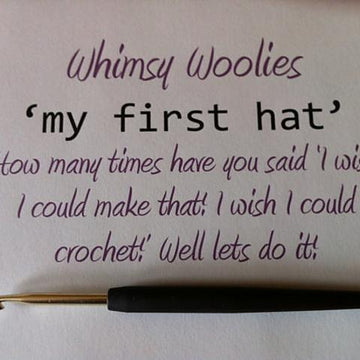 Whimsy Woolies
'my first hat'
How many times have you said 'I wis
I could make that! I wish I could
crochet!' Well lets do it!